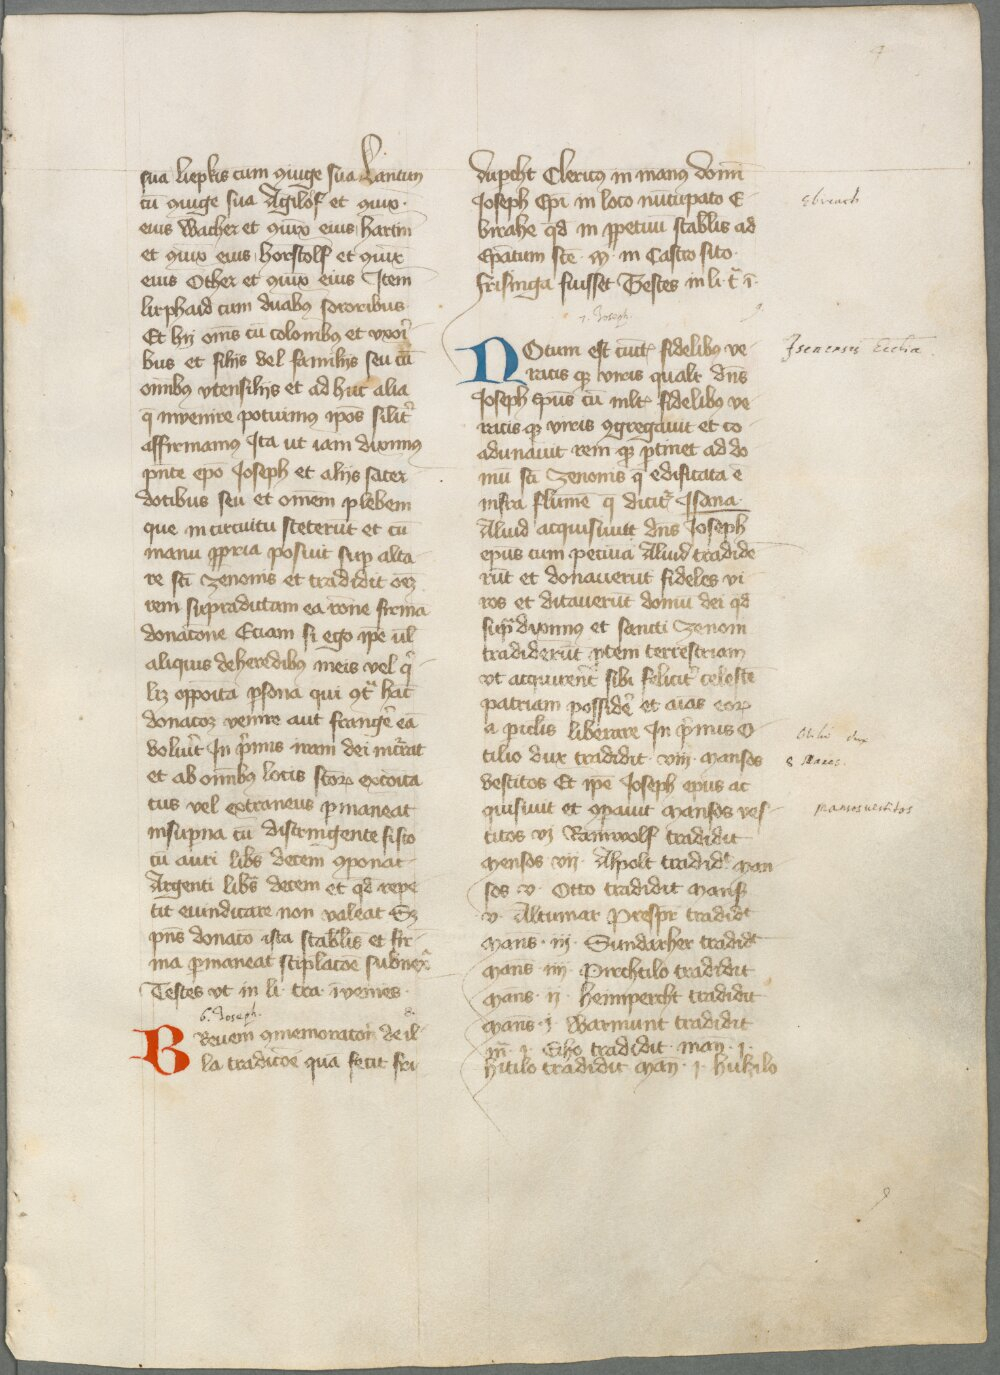 sua liepkis cum ɔiuge sua Lantun
cū ɔiuge sua Agilolf et ɔiux
eius Wacher et ɔiux eius hartm̄
et ɔiux eius horstolf et ɔiux
eius Other et ɔiux eius Item
lirphaid cum duabus sororibus
Et hij om̄s cū colonibꝰ et vxori
bus et filijs vel familijs seu cū
omībus vtensilijs et ad huc alia
q̄ invenire potuimꝰ ip̄os silit̄
affirmamus Ita ut iam diximus
pn̄te ep̄o Joseph et alijs sacer
dotibus seu et om̄em plebem
que in circuitu steterūt et cū
manu ꝓpria posuit sup alta
re sc̄i zenonis et tradidit oēȝ
rem supradictam ea rōne firma
donac̄one Eciam si ego ip̄e ul̄
aliquis de heredibus meis vel q̄
liȝ opposita ꝑsona qui ɔt̄ hāc
donac̄oȝ venire aut frangē eā
voluīt In p̄mis iram dei incurat
et ab omībus locis sc̄oꝝ excoīca
tus vel extraneus ꝑmaneat
insup̄na cū distringente fisco
cū auri libs decem ɔponat
Argenti libs decem et qd̄ repe
tit euindicare non valeat Sȝ
pn̄s donac̄o ista stabilis et fir
ma ꝑmaneat stiplac̄oe subnex̄
Testes vt in li tra īvenies
6. Joseph. 8.
BReuem ɔmemorator̄ de il
la tradic̄oe qua fecit fri
dupcht Clericꝰ in manꝰ domī
Joseph Epī in loco nūcupato E
birahe qd̄ in ꝑpetuū stabilis ad
ep̄atum sc̄e M in Castro sito
frisinga fuisset Testes in li t̄
7. Joseph. 9
NOtum est cūct fidelibꝰ ve
racis qꝫ viris qualit dn̄s
Joseph ep̄us cū mlt fidelibꝰ ve
racis qꝫ viris ɔgregauit et co
adunauit rem qꝫ ꝑtinet ad do
mū sc̄i zenonis q̄ edificata ē
infra flumē q̄ dicit̄ Isana
Aliud acquisiuit dn̄s Joseph
epus cum petiua Aliud tradide
rūt et donauerūt fideles vi
ros et ditauerūt domū dei qd̄
sup̄ diximus et sancti zenoni
tradiderūt ꝑtem terrestriam
vt acquirēt sibi felicit̄ celestē
patriam possidē et aīas eoꝝ
a ꝑiclis liberare In p̄mis O
tilio dux tradidit viij mansos
vestitos Et ip̄e Joseph epus ac
quisiuit et ɔpauit mansos ves
titos vj Ramwolf tradidit
mensos vij Alpolt tradidt man
sos v Otto tradidit mans
v Altumar Prespr tradidt
mans iij Sundarher tradidt
mans iiij Pirchtilo tradidit
mans ij heimpercht tradidit
mans j Warmunt tradidit
m̄ j Eiho tradidit man̄ j
hitilo tradidit man̄ j hukilo
Ebrach
Isenensis Ecclia
Otilio dux
8 Mans.
mansos vestitos